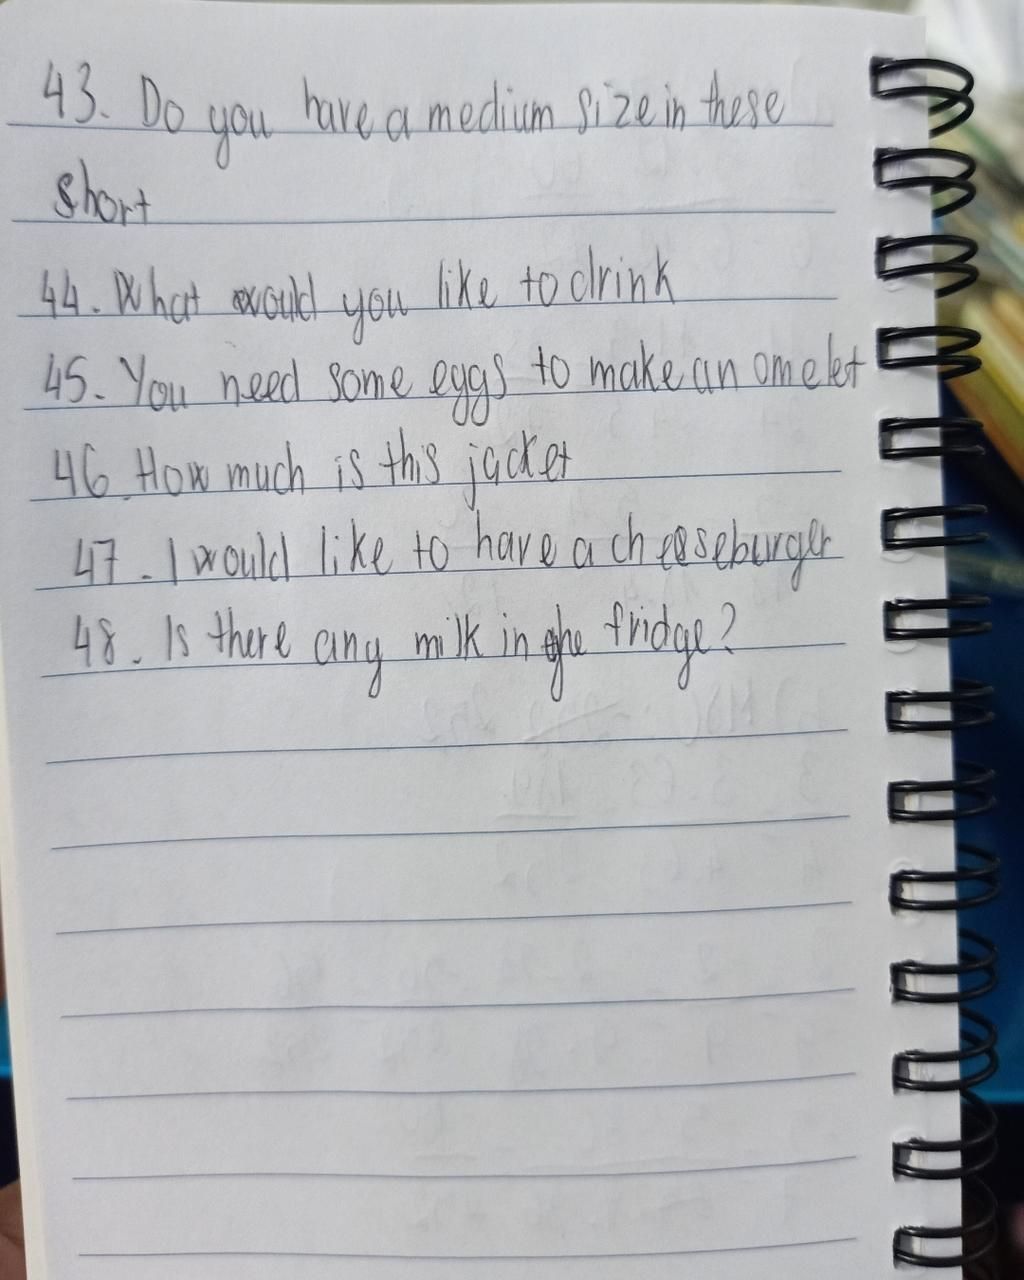 43. Do you have a medium size in these
short
44. What would you like to drink
45. You need some eggs to make an omelet
46. How much is this jacket
47. I would like to have a cheeseburger
48. Is there any milk in the fridge?